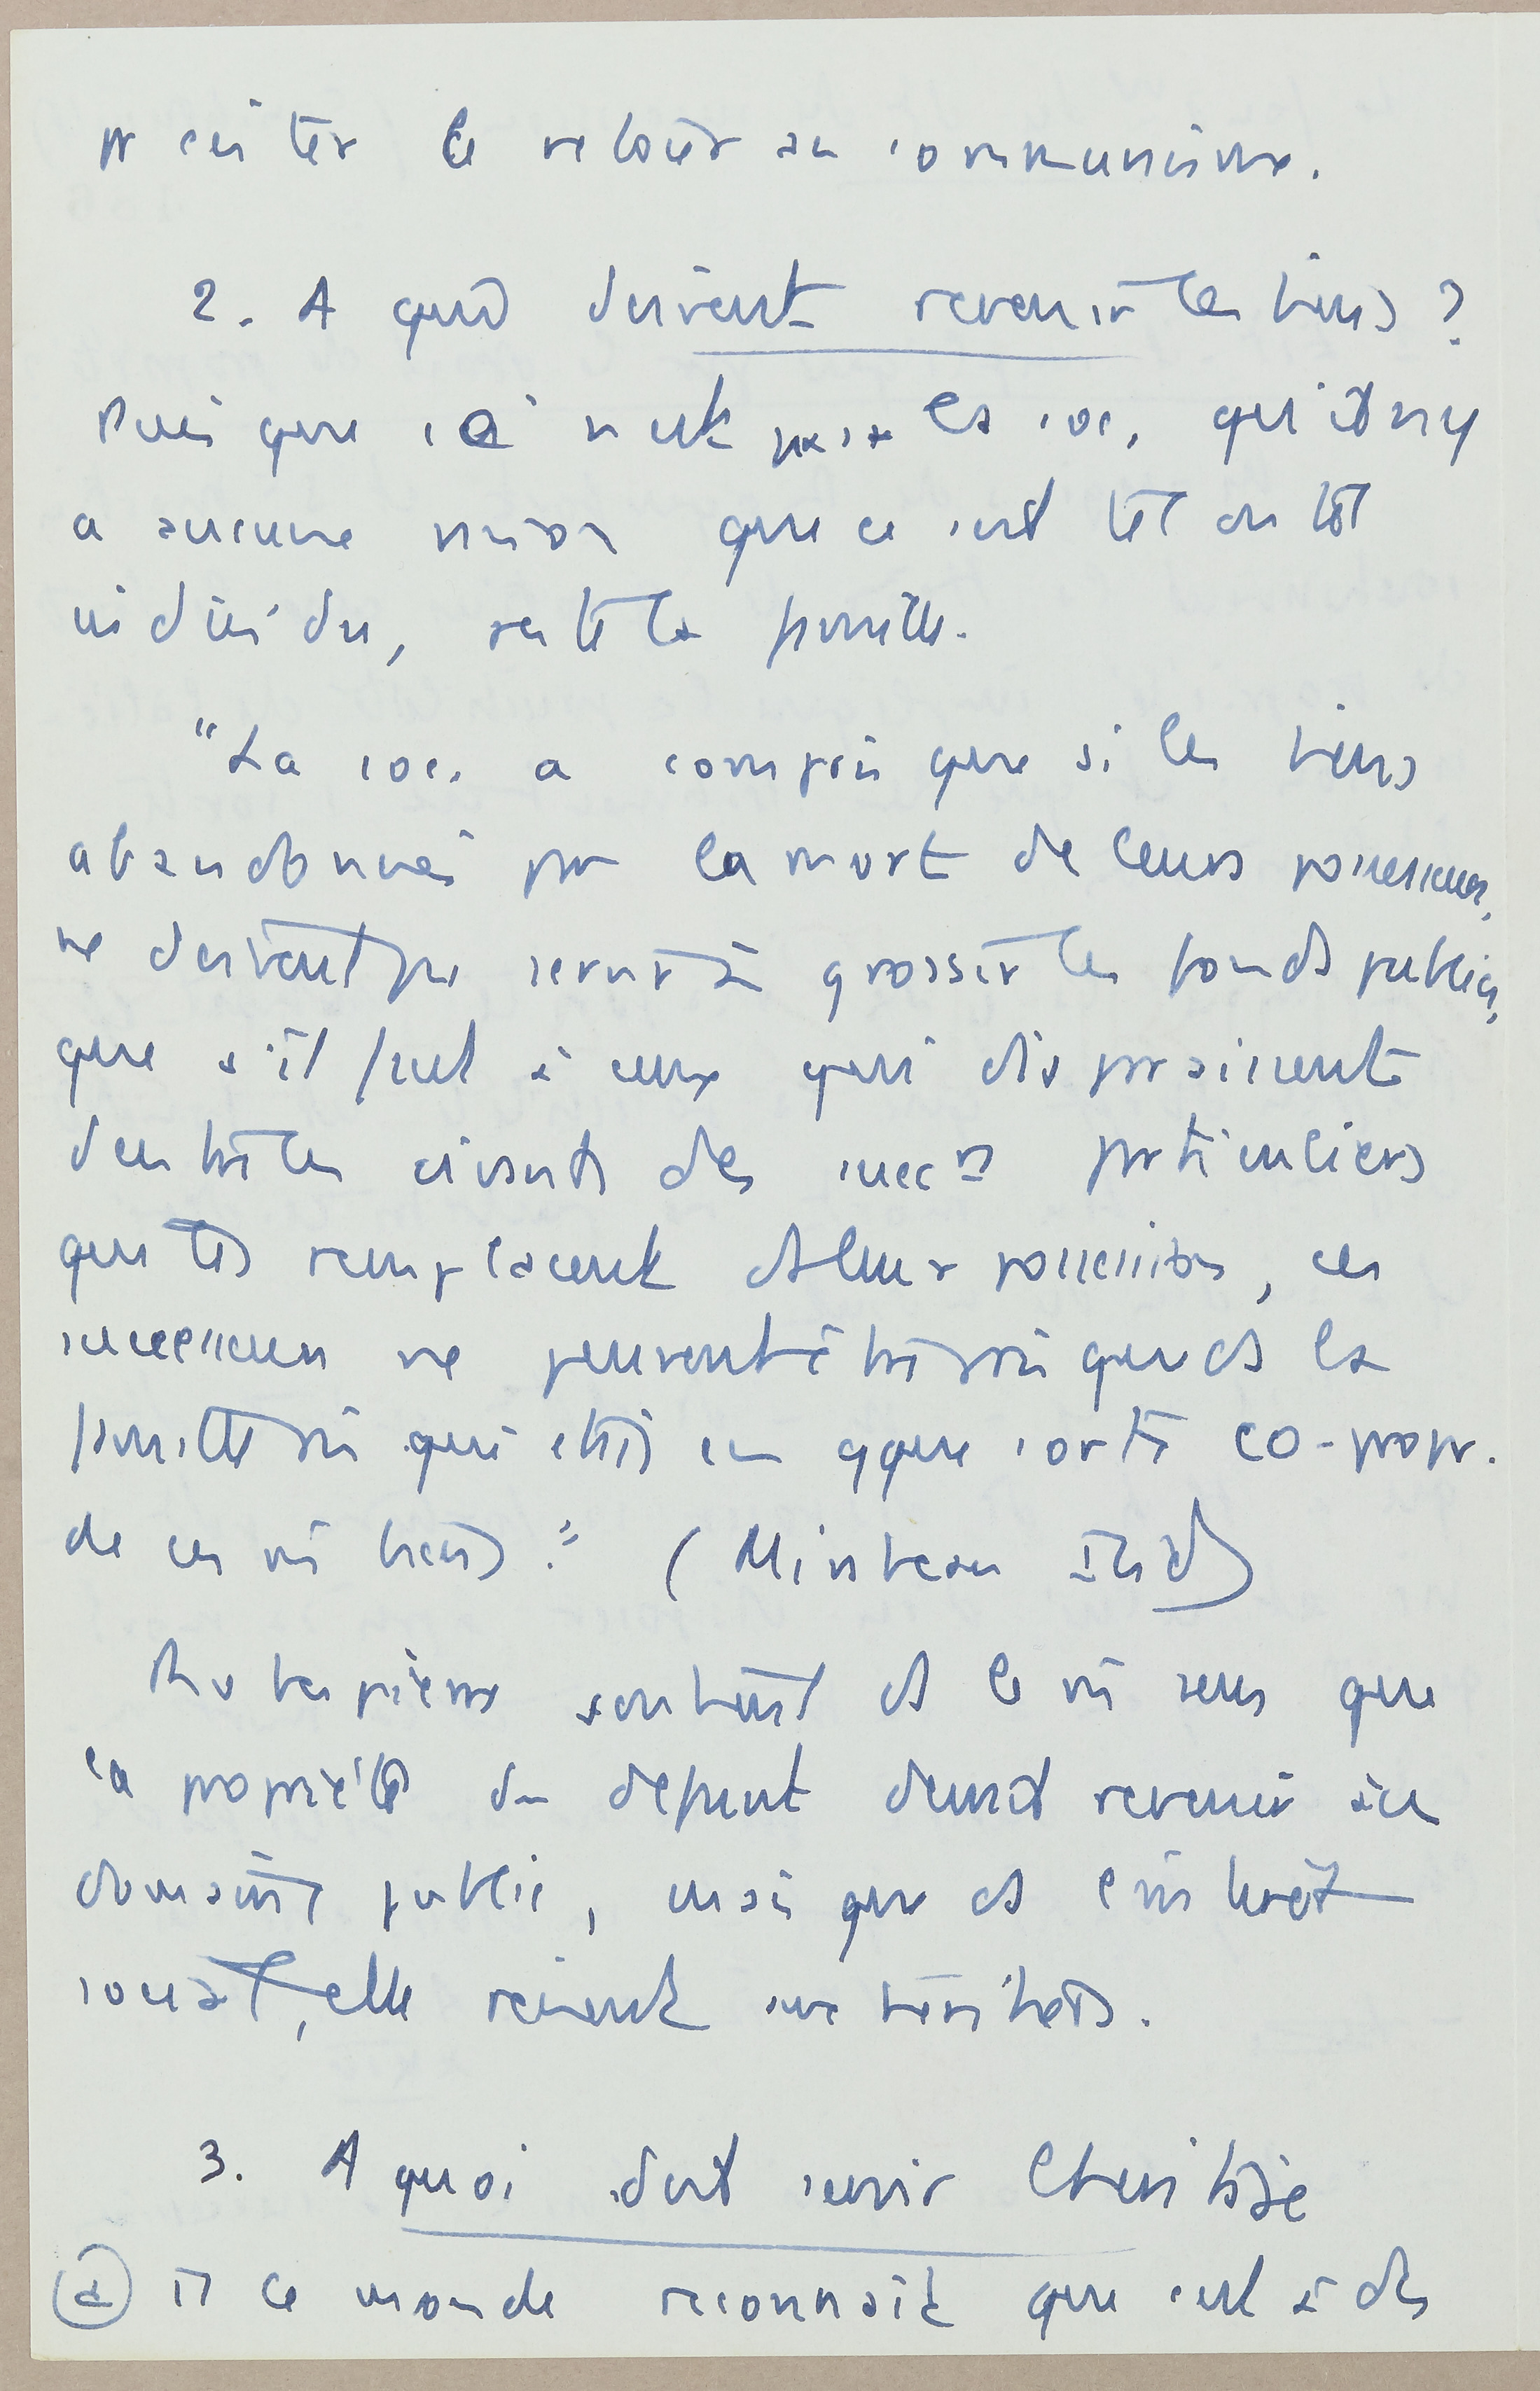 pr eviter le retour au communisme.
2. A qui doivent revenir les biens ?
Puisque ce n'est pas à la soc, qu'il n'y
a aucune raison que ce soit tel ou tel
individu, reste la famille.
"La soc. a compris que si les biens
abandonnés par la mort de leurs possesseurs,
ne doivent pas servir à grossir les fonds publics,
que s'il faut à ceux qui disparaissent
d'entre les vivants des succrs particuliers
qui les remplacent ds leur possession, ces
successeurs ne peuvent être pris que ds la
famille qui était en qque sorte co-propr.
de ces m̂ biens." (Mirabeau Ibid)
Robespierre soutient ds le m̂ sens que
la propriété du défunt devrait revenir au
domaine public, mais que ds l'intérêt
social, elle revient aux héritiers.
3. A quoi doit servir l'héritage
(a) Tt le monde reconnait que c'est à des